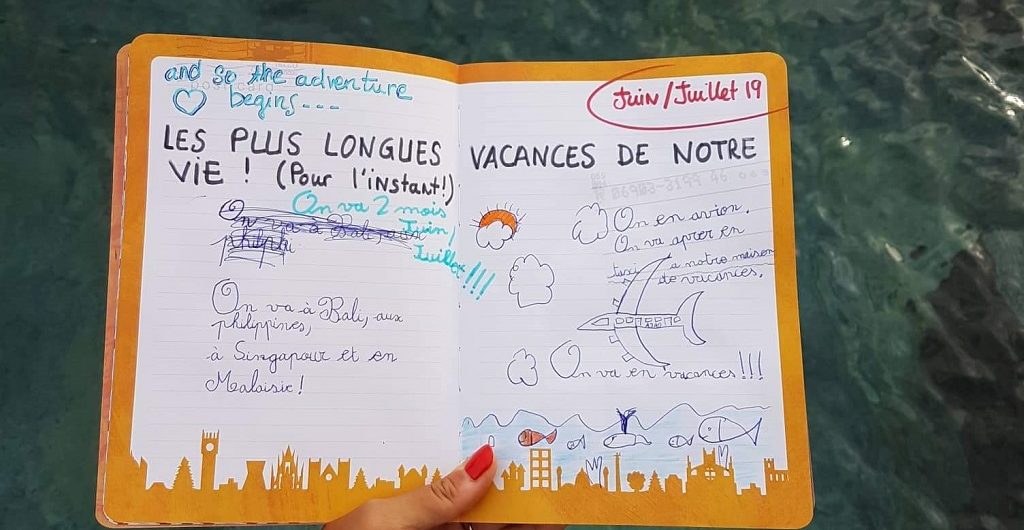 and so the adventure
begins...
LES PLUS LONGUES
VIE ! (Pour l'instant!)
On va 2 mois
Juin/
Juillet!!!
On va à Bali, aux
philippines,
à Singapour et en
Malaisie!
Juin/Juillet 19
VACANCES DE NOTRE
On en avion.
On va aprer en
taxi à notre maison
de vacances.
On va en vacances!!!